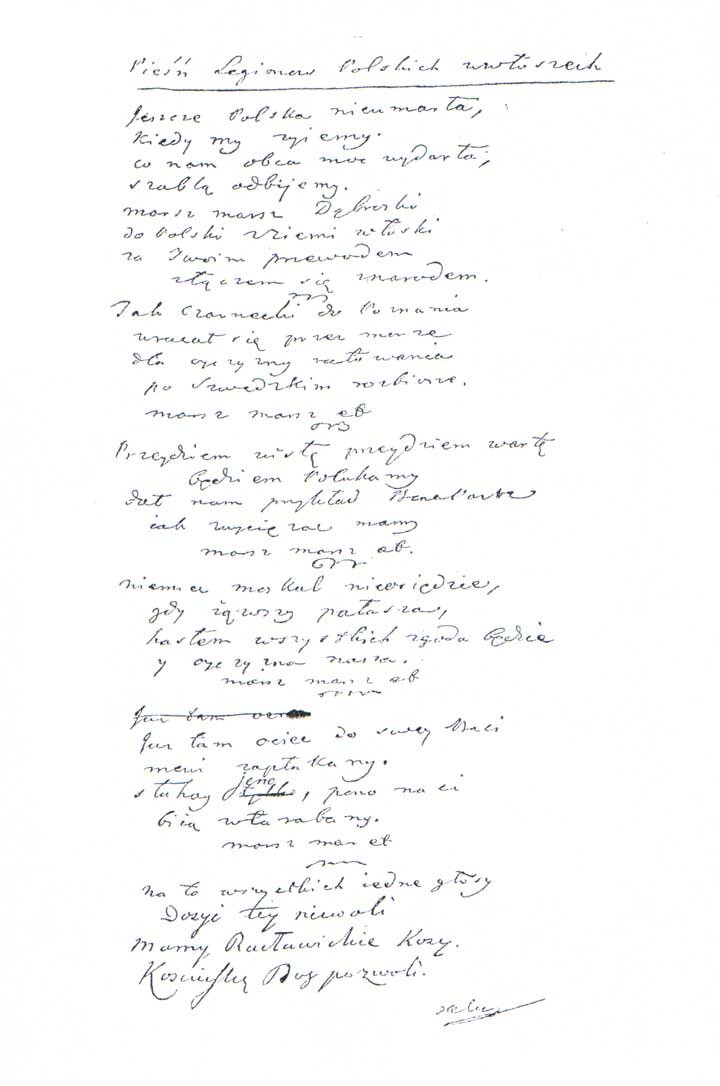 Pieśń Legionow Polskich wewłoszech
Jeszcze Polska nieumarła,
kiedy my zyiemy.
co nam obca moc wydarła,
szablą odbijemy.
marsz marsz Dąbroski
do Polski zziemi włoski
za Twoim przewodem
złączem się znarodem.
Jak Czarnecki do Poznania
wracał się przez morze
dla oyczyzny ratowania
po szwedzkim rozbiorze.
marsz marsz etc
Przeydziem wisłę przeydziem wartę
będziem Polakamy
dał nam przykład Bonaparte
iak zwycięzać mamy
marsz marsz etc.
niemiec moskal nieosiędzie,
gdy iąwszy pałasza,
hasłem wszystkich zgoda będzie
y oyczyzna nasza.
marsz marsz etc
Juz tam ocie
Juz tam ociec do swey Basi
mowi zapłakany.
słuchay jeno, pono nasi
biią wtarabany.
marsz mar etc
na to wszystkich iedne głosy
Dosyć tey niewoli
mamy Racławickie Kosy.
Kosciuszkę Bog pozwoli.